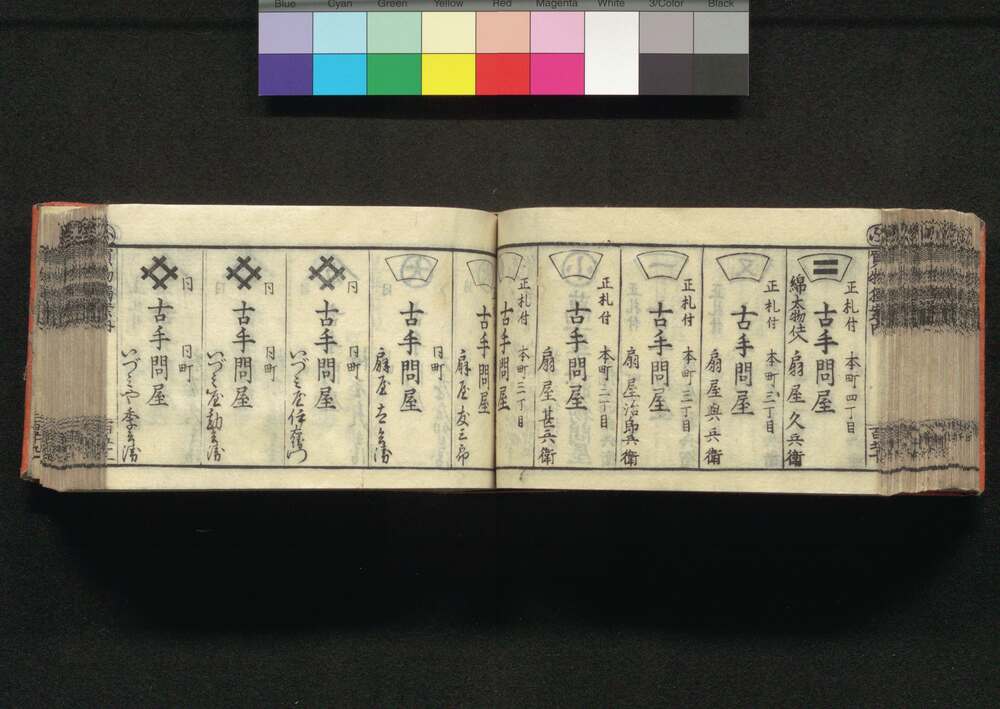 Blue Cyan Green Yellow Red Magenta White 3/Color Black
二
正札付 本町四丁目
古手問屋
綿太物仕入 扇屋久兵衛
又
正札付 本町三丁目
古手問屋
扇屋與兵衛
一
正札付 本町三丁目
古手問屋
扇屋治郎兵衛
小
正札付 本町二丁目
古手問屋
扇屋甚兵衛
正札付 本町三丁目
古手問屋
古手問屋
扇屋友三郎
大
同町
古手問屋
扇屋
同
同町
古手問屋
いづみ屋
同
同町
古手問屋
いづみ屋
同
同町
古手問屋
いづみや